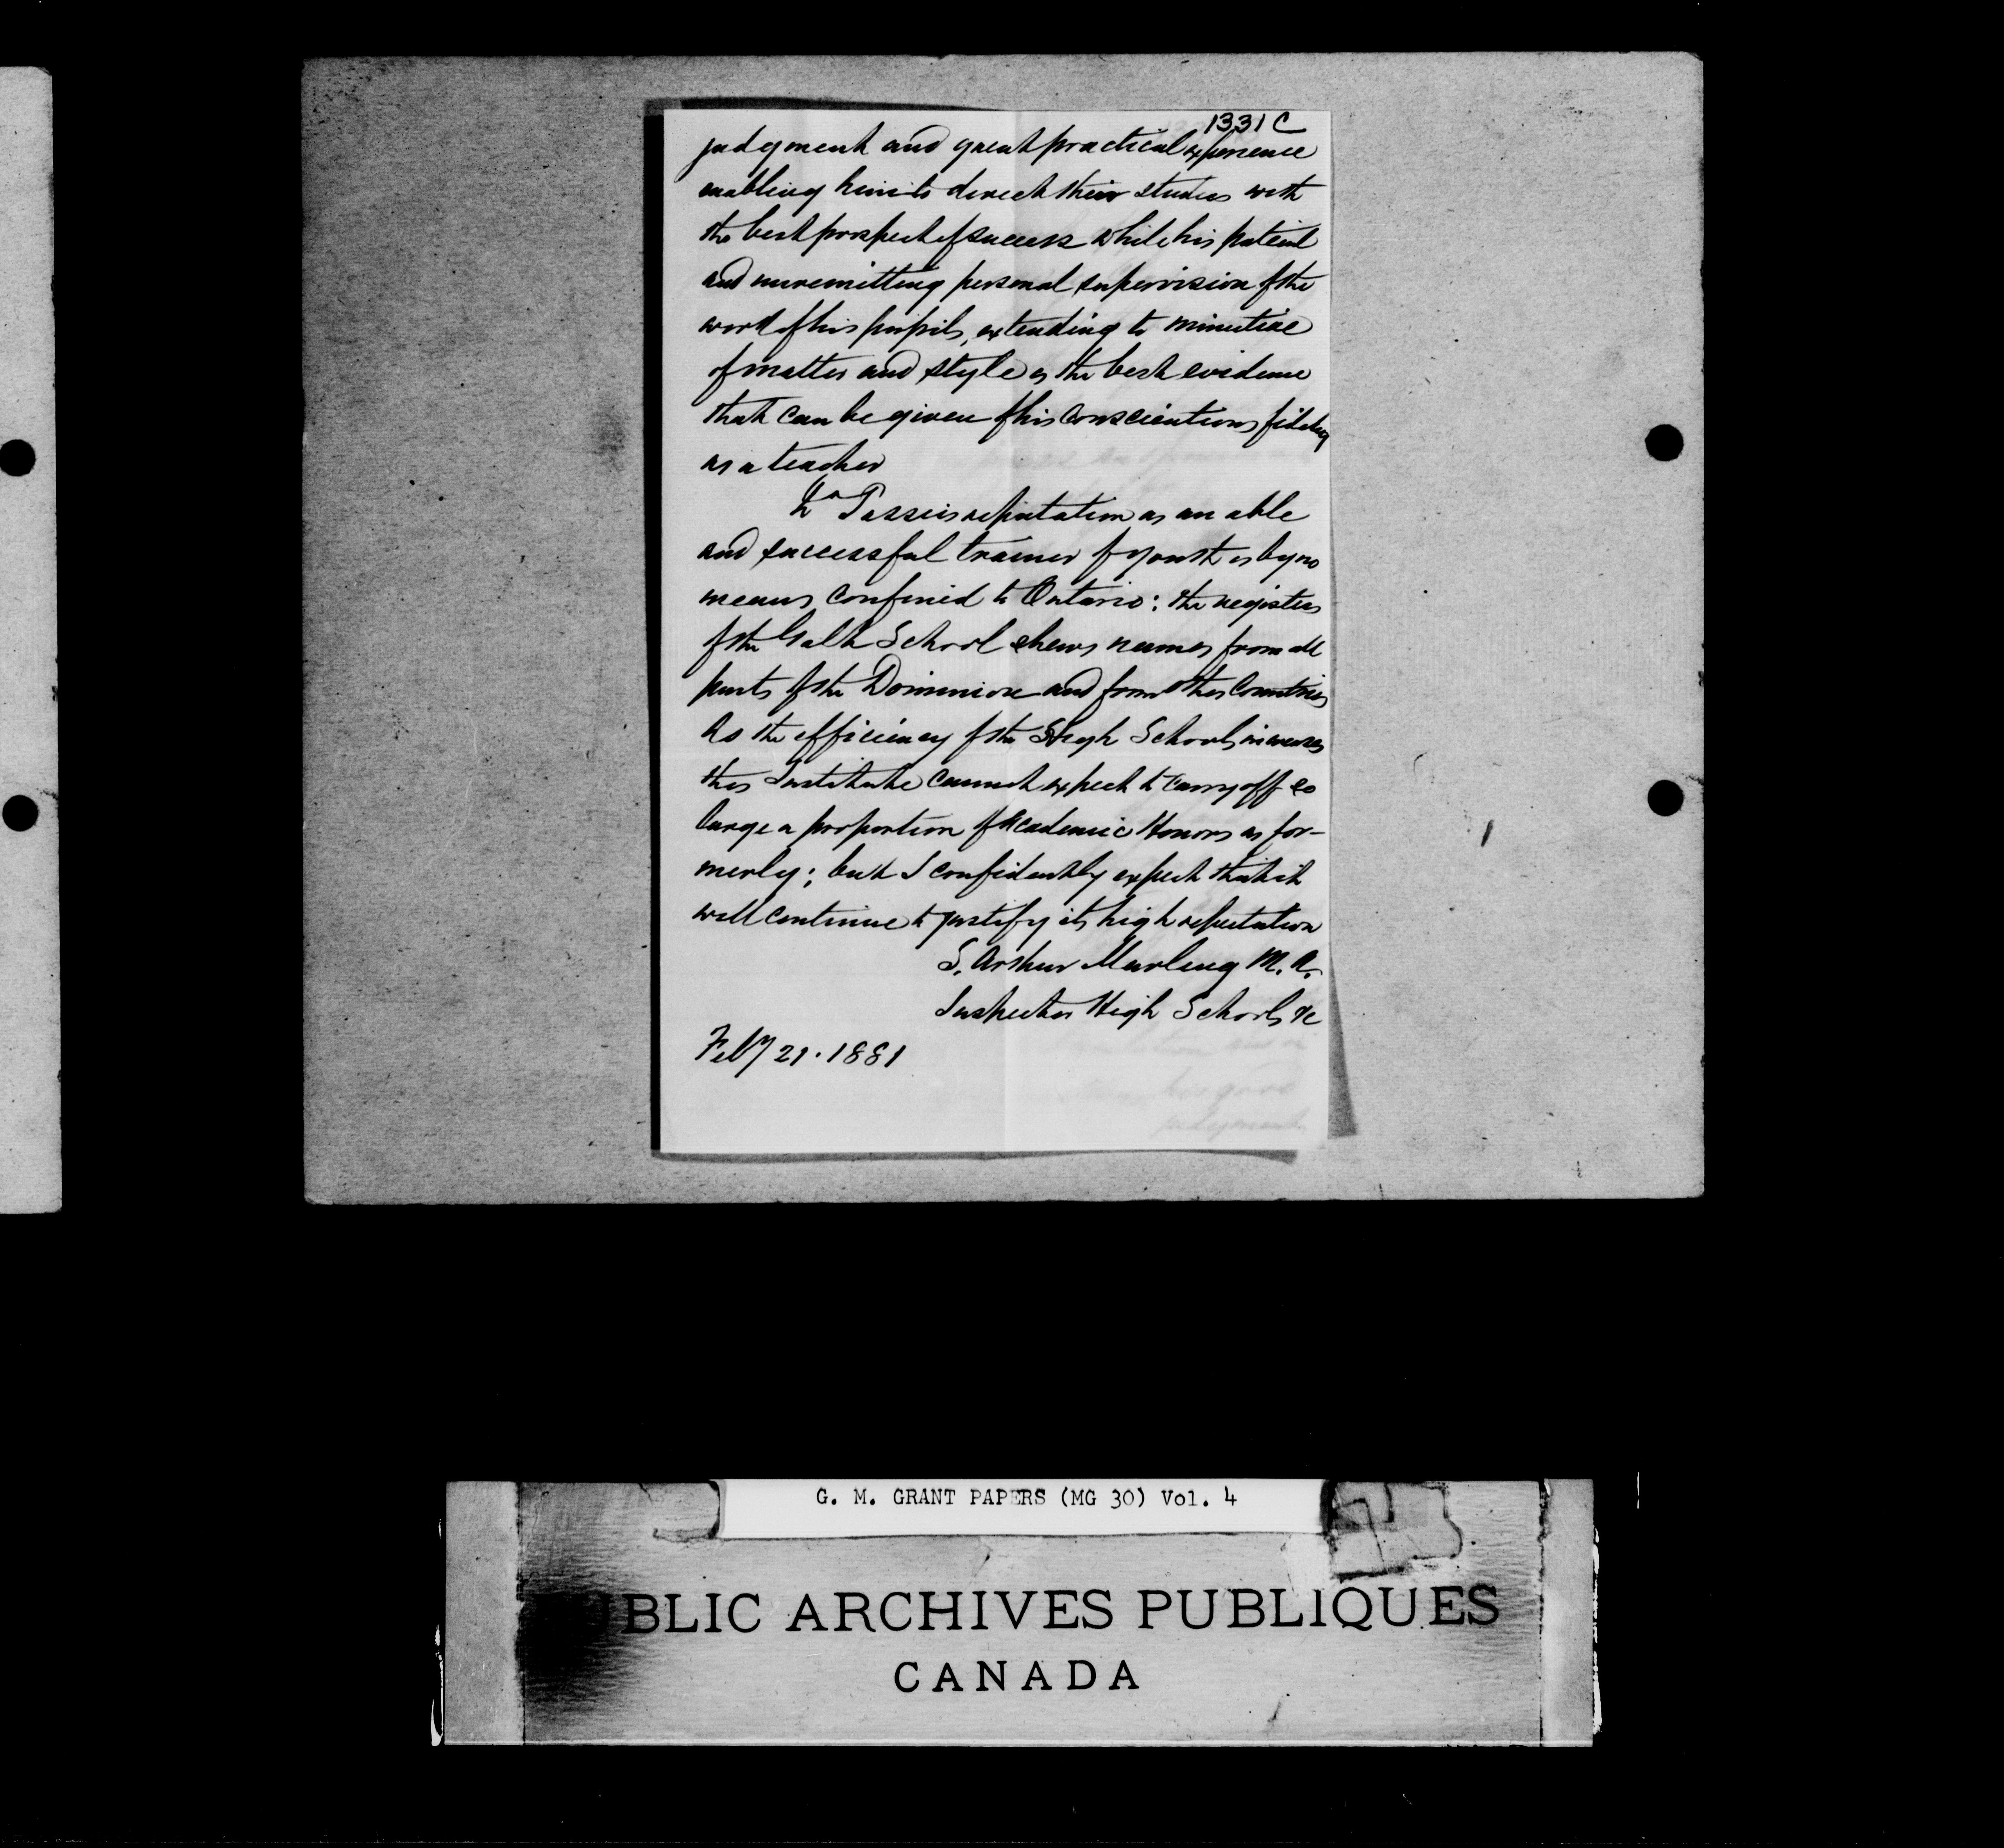 1331 C
judgment and great practical experience
enabling him to direct their studies with
the best prospect of success while his patient
and unremitting personal supervision of the
work of his pupils, extending to minutiae
of matter and style is the best evidence
that can be given of his conscientious fidelity
as a teacher
Dr Tassie's reputation as an able
and successful trainer of youth is by no
means confined to Ontario: the registers
of the Galt School shews names from all
parts of the Dominion and from other Countries
As the efficiency of the High Schools increases
this Institute cannot expect to carry off so
large a proportion of Academic Honors as for-
merly; but I confidently expect that it
will continue to justify its high reputation
S. Arthur Marling M.A.
Inspector High Schools &c
Feby 21. 1881
G. M. GRANT PAPERS (MG 30) Vol. 4
PUBLIC ARCHIVES PUBLIQUES
CANADA